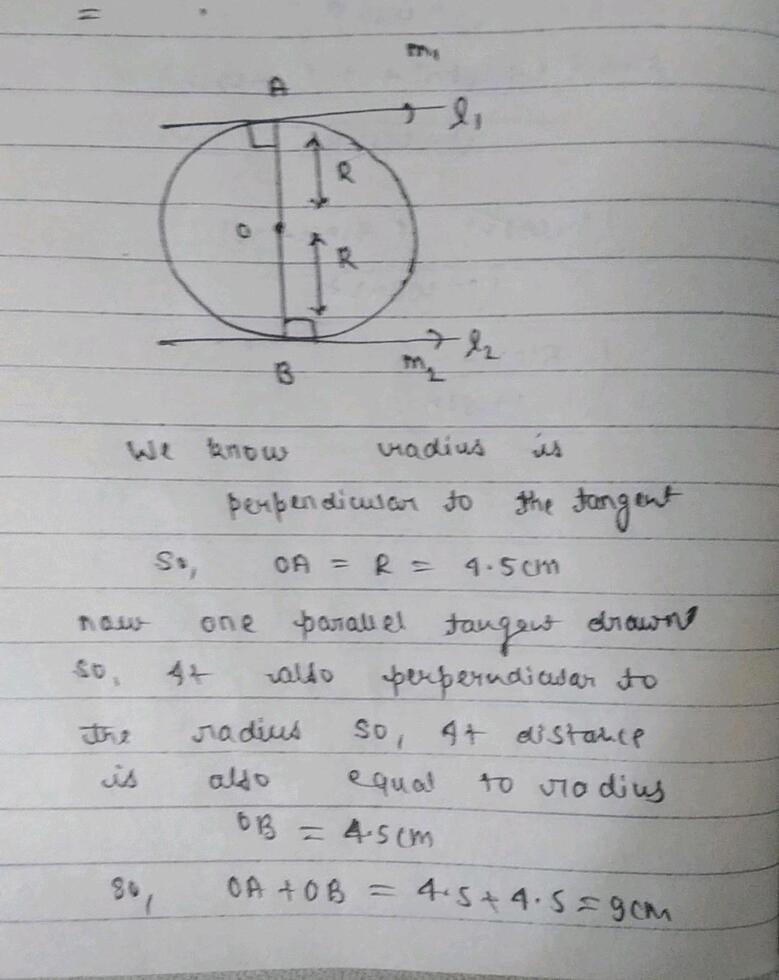 =
m₁
A
l₁
R
O
R
l₂
m₂
B
We know radius is
perpendicular to the tangent
So, OA = R = 4.5cm
now one parallel tangent drawn
so, it also perpendicular to
the radius so, it distance
is also equal to radius
OB = 4.5cm
so, OA + OB = 4.5 + 4.5 = 9cm